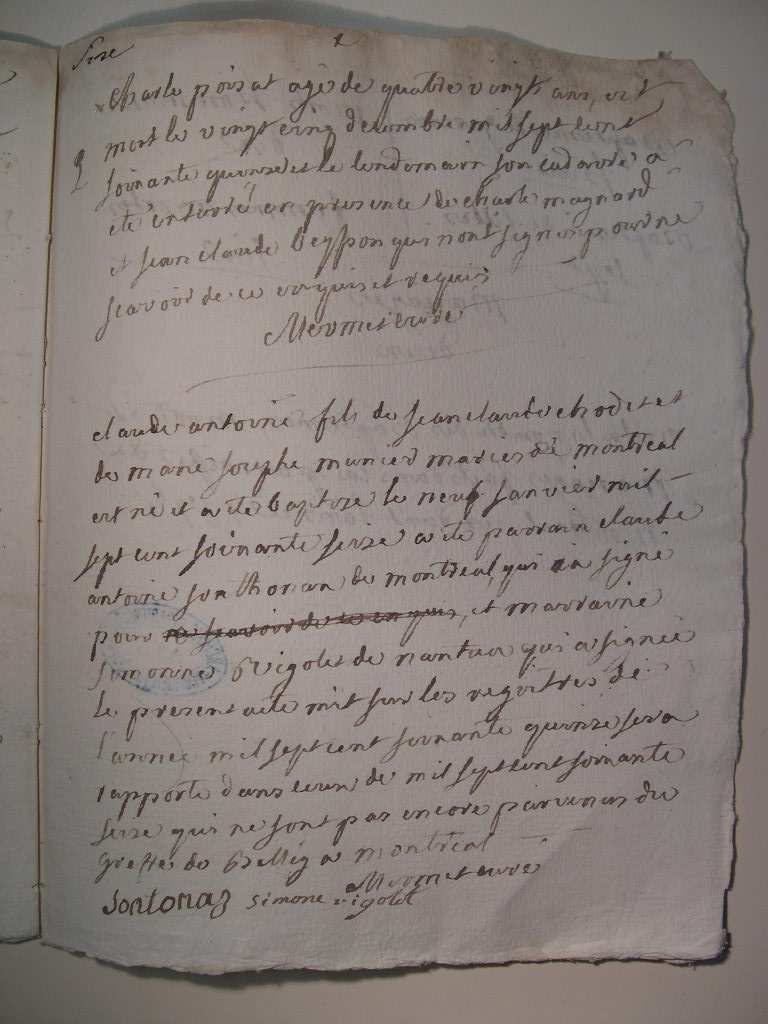 Charle poisat agé de quatre vingt ans, est
mort le vingt cinq decembre mil sept cent
soixante quinze et le lendemain son cadavre a
été enterré en presence de Charle magnard
et jean claude beysson qui n'ont signé pour ne
scavoir de ce enquis et requis
Mermet curé
claude antoine fils de jean claude chodet et
de marie josephe munier mariés de montreal
est né et a ete baptise le neuf janvier mil
sept cent soixante seize a ete parrain claude
antoine sonthonax de montreal, qui a signé
pour ne scavoir de ce enquis, et marraine
simonne Rigolet de nantua qui a signée
le present acte mit sur les registres de
l'année mil sept cent soixante quinze sera
rapporté dans ceux de mil sept cent soixante
seize qui ne sont pas encore parvenus du
greffe de Bellig a montreal
Mermet curé
sontonax simone rigolet